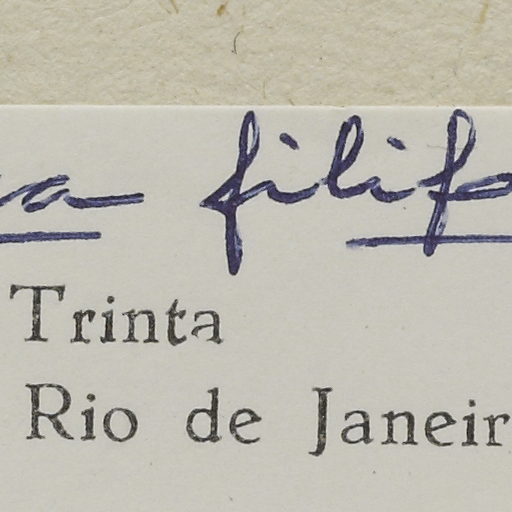 ea filifo
Trinta
Rio de Janeir